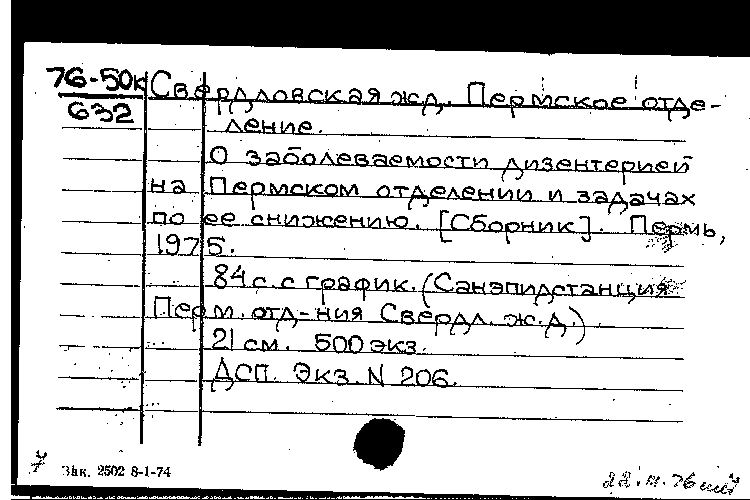 76-50к Свердловская ж.д. Пермское отде-
632
ление.
О заболеваемости дизентерией
на Пермском отделении и задачах
по ее снижению. [Сборник]. Пермь,
1975.
84 с. с график. (Санэпидстанция
Перм. отд-ния Свердл. ж.д.)
21 см. 500 экз.
ДСП. Экз. N 206.
7 Зак. 2502 8-1-74